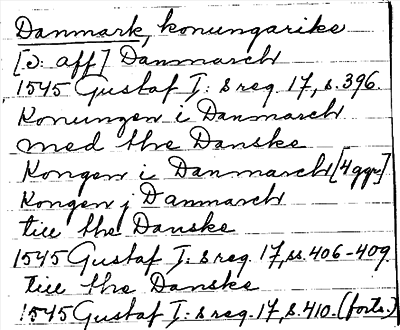 Danmark, konungarike
[o. aff] Danmarch
1545 Gustaf I: s reg. 17, s. 396.
Konungen i Danmarch
med the Danske
Kongen i Danmarch [4 ggr]
Kongen j Danmarch
till the Danske
1545 Gustaf I: s reg. 17, ss. 406-409
till the Danske
1545 Gustaf I: s reg. 17, s. 410. (forts.)